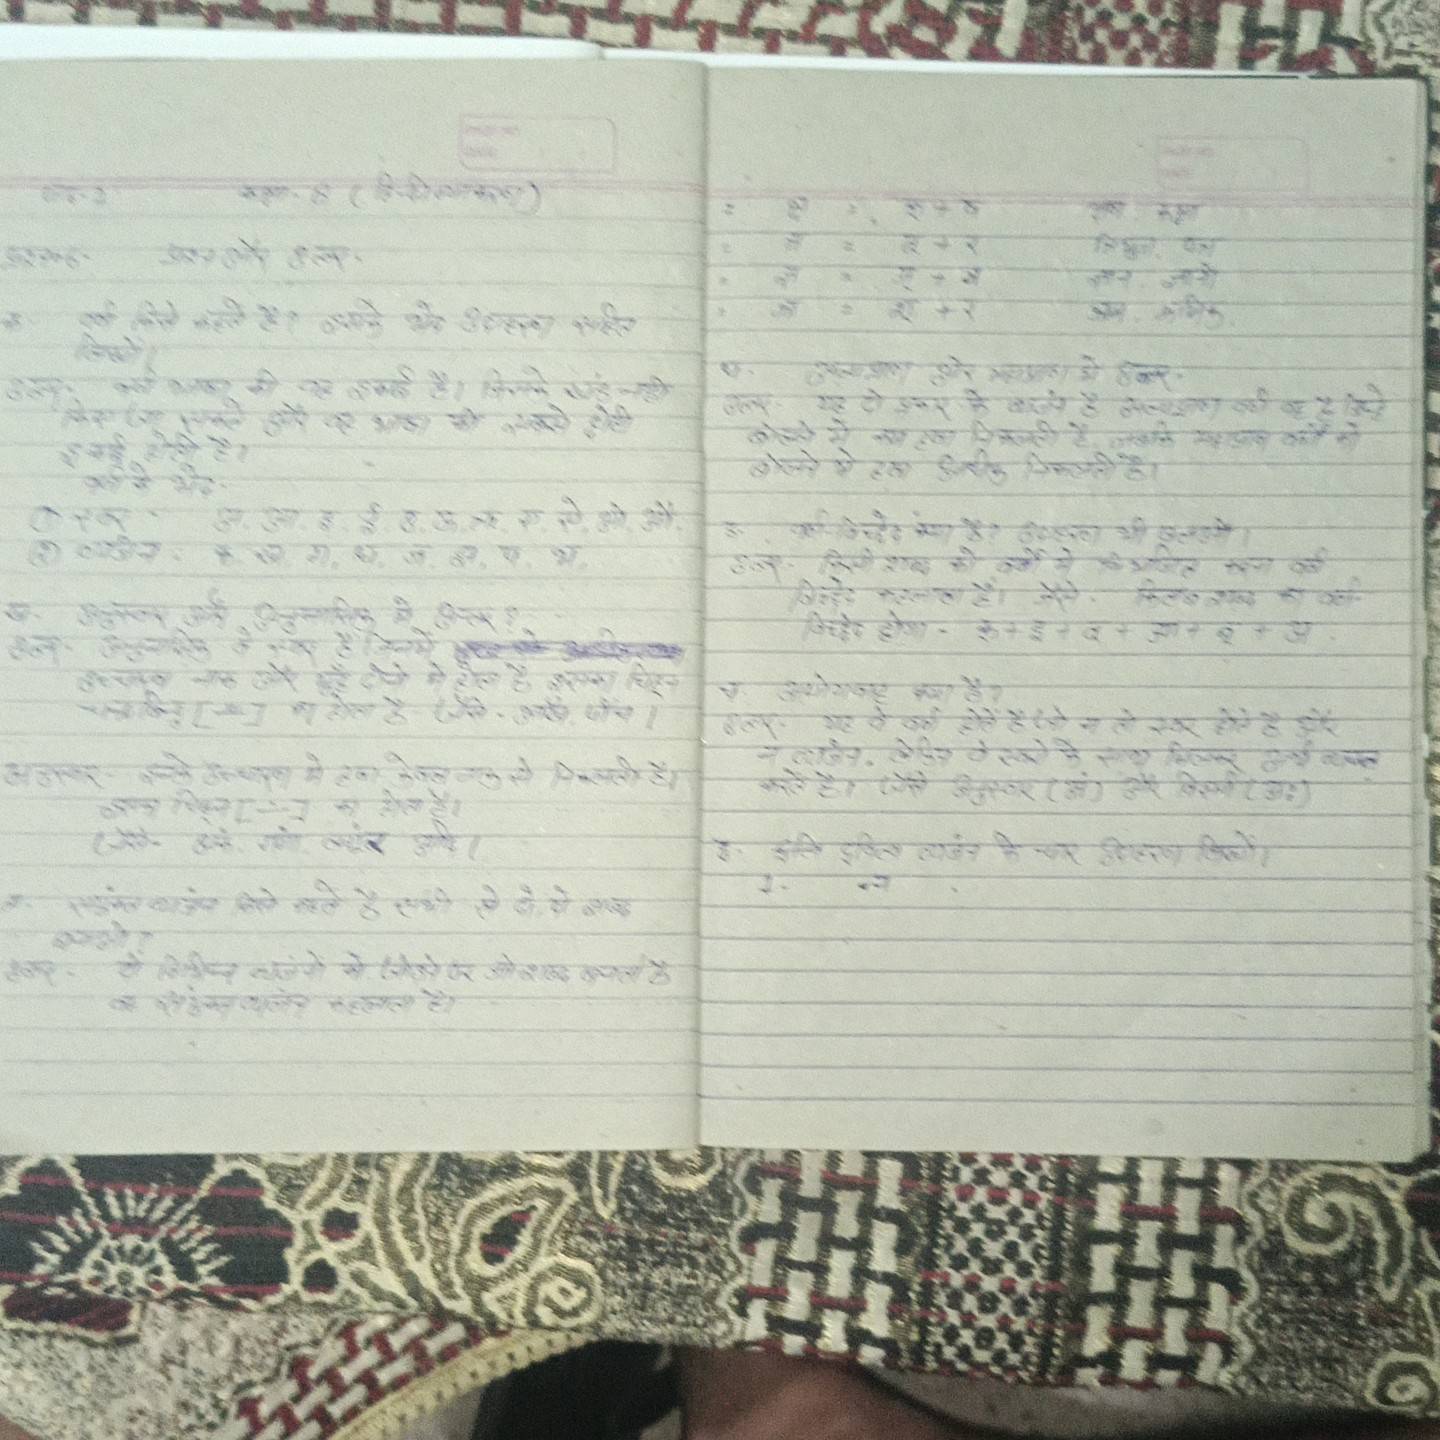 पाठ-2 कक्षा-8 (हिन्दी व्याकरण)
प्रश्न और उत्तर-
क- वर्ण किसे कहते है? इसके भेद उदाहरण सहित
लिखो।
उत्तर- वर्ण भाषा की वह इकाई है। जिसके खंड नही
किए जा सकते और यह भाषा की सबसे छोटी
इकाई होती है।
वर्ण के भेद-
(1) स्वर - अ. आ. इ. ई. उ. ऊ. ऋ. ए. ऐ. ओ. औ.
(2) व्यंजन - क. ख. ग. घ. ज. झ. प. भ.
ख- अनुस्वार और अनुनासिक मे अन्तर?
उत्तर- अनुनासिक वे स्वर है जिनमें
उच्चारण नाक और मुँह दोनो से होता है इसका चिह्न
चन्द्रबिन्दु [ ँ ] का होता है जैसे- आँख. पाँच।
अनुस्वार- इनके उच्चारण मे हवा केवल नाक से निकलती है।
इसका चिह्न [ ं ] का होता है।
जैसे- अंक. गंगा. आदि।
ग- संयुक्त व्यंजन किसे कहते है सभी से दो. दो शब्द
बनाओ?
उत्तर- दो विभिन्न व्यंजनो को जोडने पर जो शब्द बनता है
वह संयुक्त व्यंजन कहलाता है।
= क्ष = क् + ष कक्षा
= त्र = त् + र पत्र
= ज्ञ = ज् + ञ ज्ञान. ज्ञानी
= श्र = श् + र श्रम. श्रमिक.
घ- अल्पप्राण और महाप्राण मे अन्तर-
उत्तर- यह दो प्रकार के व्यंजन है अल्पप्राण वर्ण वह है जिन्हे
बोलने मे कम हवा निकलती है. जबकि महाप्राण वर्णो को
बोलने मे हवा अधिक निकलती है।
ङ- वर्ण-विच्छेद क्या है? उदाहरण भी बताओ।
उत्तर- किसी शब्द को वर्णो मे विभाजित करना वर्ण
विच्छेद कहलाता है। जैसे- किताब शब्द का वर्ण-
विच्छेद होगा- क + इ + त + आ + ब + अ.
च- अयोगवाह क्या है?
उत्तर- यह वे वर्ण होते है जो न तो स्वर होते है और
न व्यंजन. लेकिन वे स्वरो के साथ मिलकर अर्थ व्यक्त
करते है। जैसे अनुस्वार (अं) और विसर्ग (अः)
छ- व्यंजन के चार उदाहरण लिखो।
1-